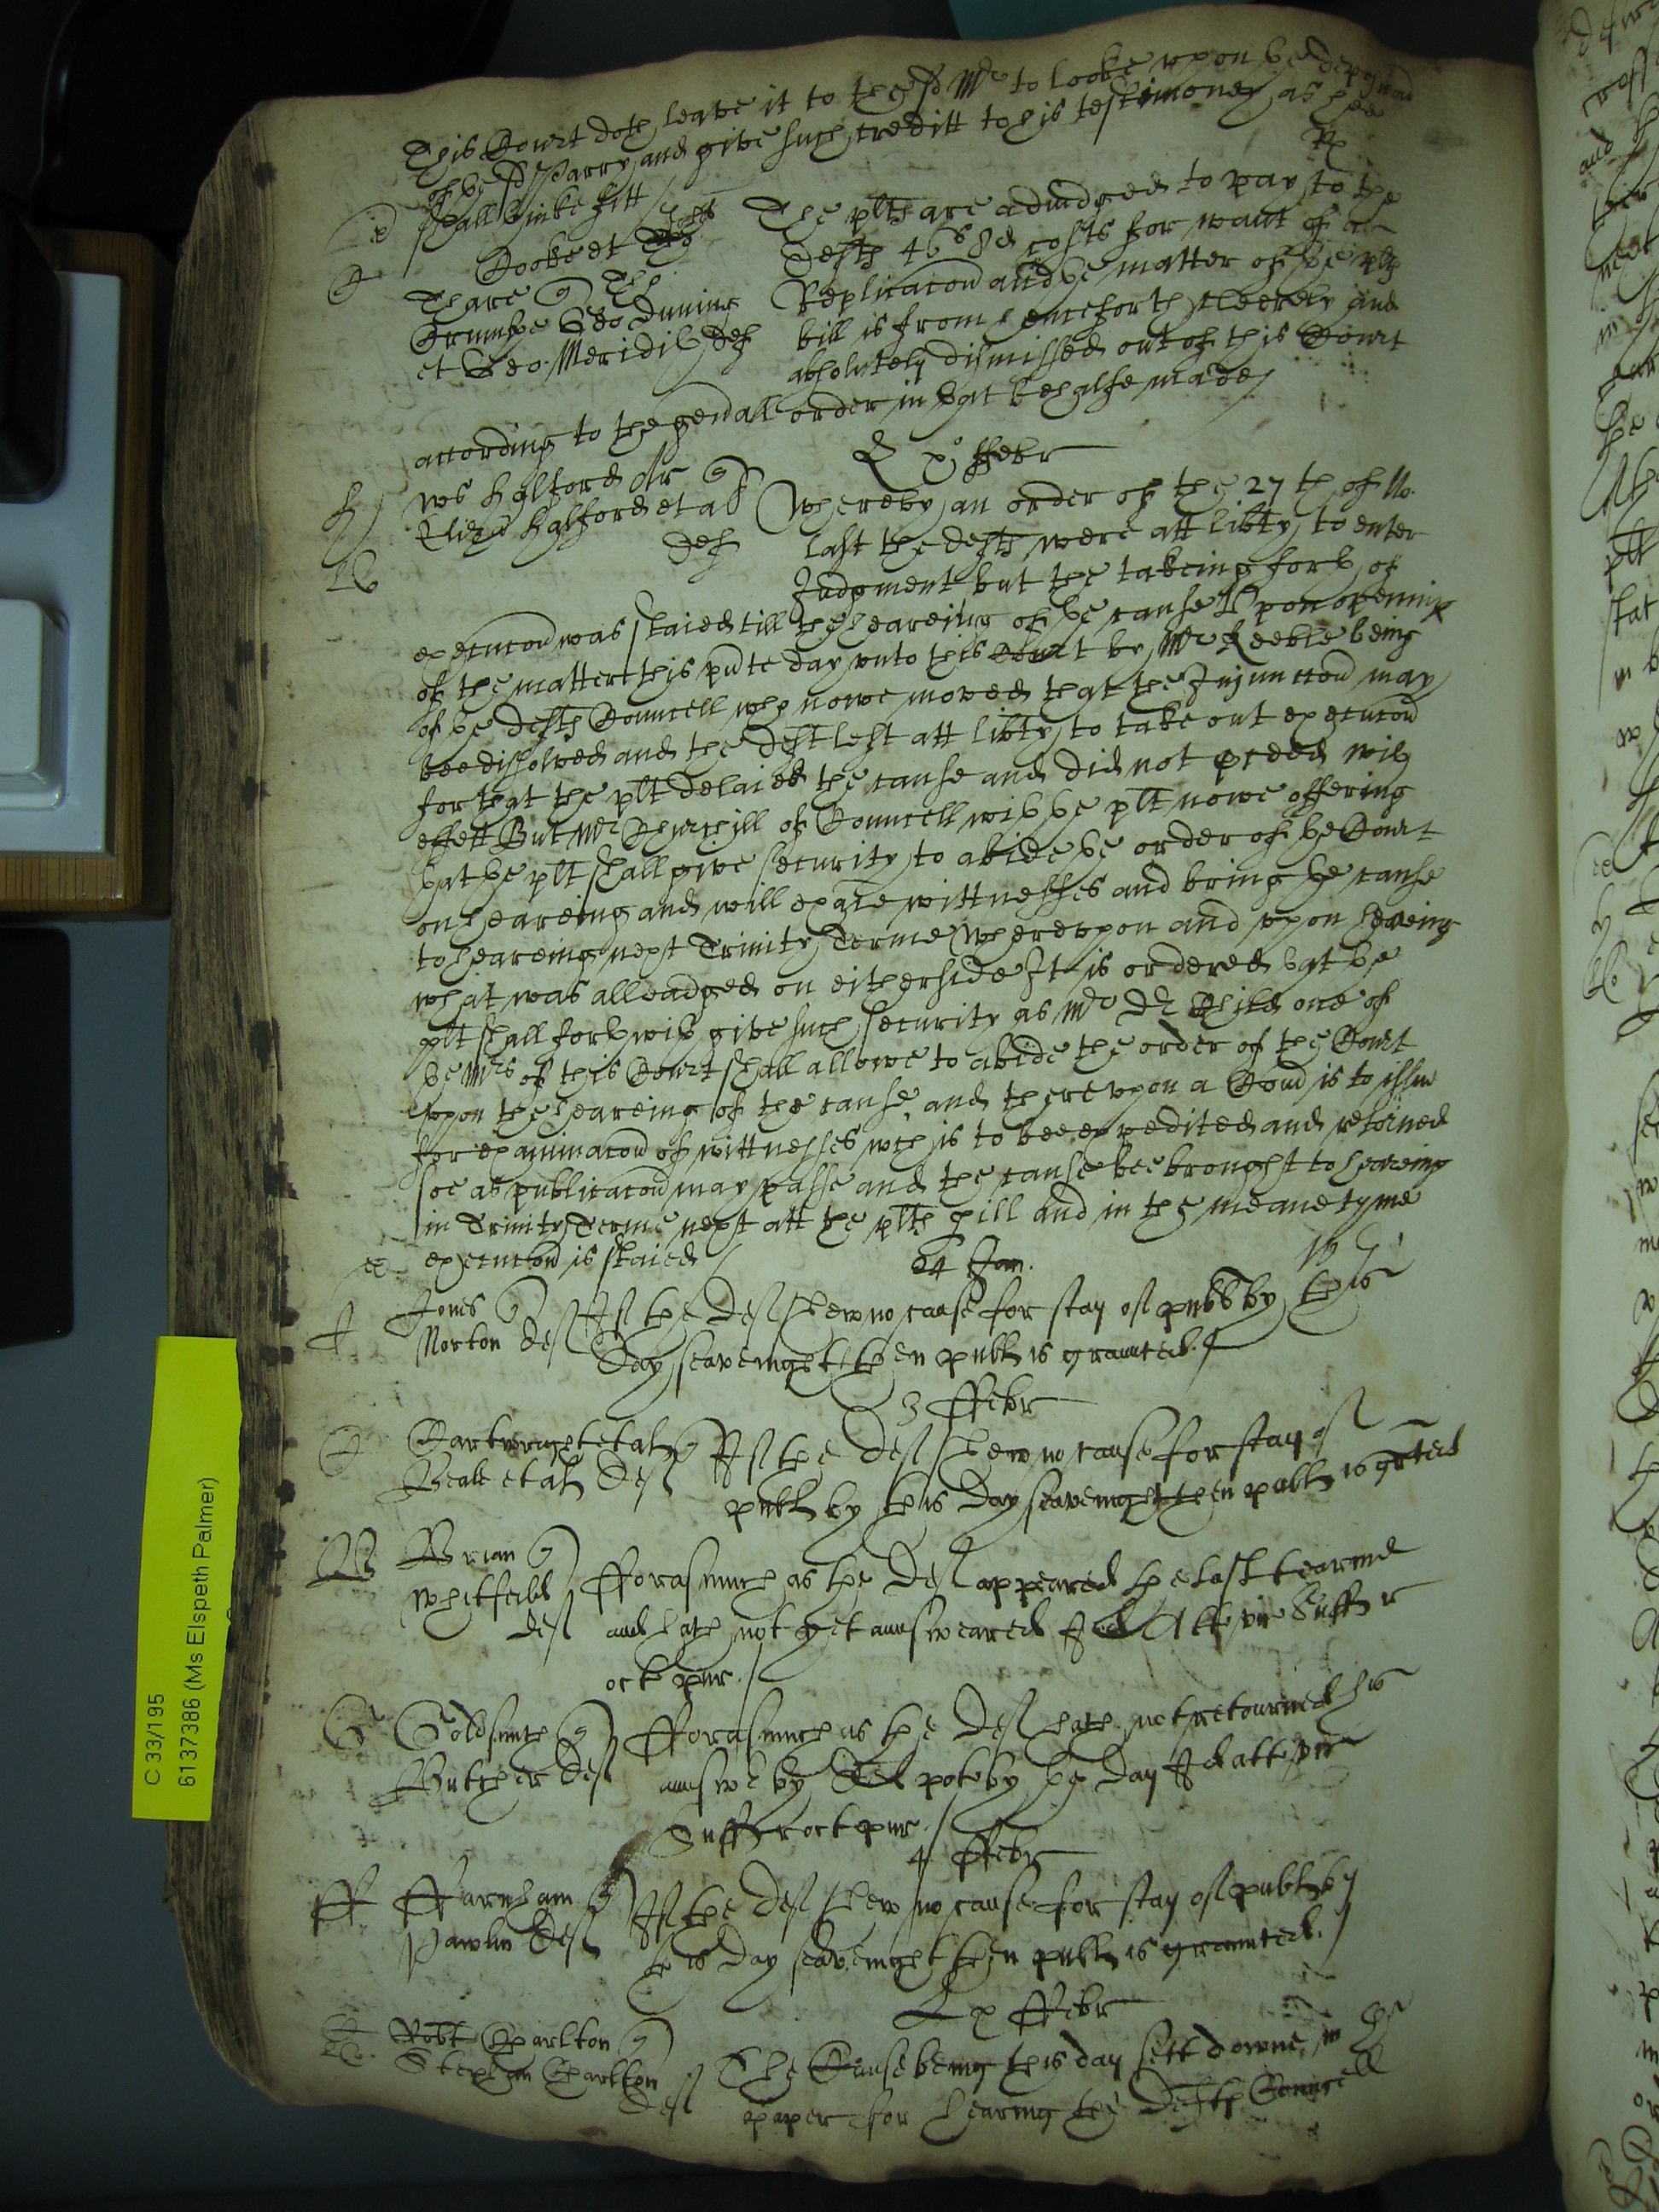 This Court doth leave it to the sd Mr to looke upon ye
of ye sd Parry and give such creditt to his testimoney as hee
shall thinke fitt
Cooke et
The plts are adiudged to pay to the
defts 46s 8d costs for want of a
Replicacon and ye matter of ye plts
bill is from henceforth cleerely and
absolutely dismissed out of this Court
et Geo Meridith def
according to the genall order in that behalfe made
xj° ffebr
H
Ws Halford Ar q
Eliza Halford et al
def
Whereby an order of the 27th of No.
last the defts were att libty to enter
Judgment but the takeing forth of
execucon was staied till the heareing of ye cause Upon opening
of the matter this pnte day unto this Court by Mr Keeble being
of ye defts Councell who nowe moved that the Injunccon may
bee dissolved and the deft left att libty to take out execucon
for that the plt delaied the cause and did not pceed with
effect But Mr Churchill of Councell with ye plt nowe offering
that ye plt shall give security to abide ye order of ye Court
on heareing and will exaie wittnesses and bring ye cause
to heareing next Trinity Terme Whereupon and upon heareing
what was alleadged on either side It is ordered that ye
plt shall forthwith give such security as Mr Dr Child one of
ye Mrs of this Court shall allowe to abide the order of the Court
upon the heareing of the cause, and thereupon a Com is to issue
for examinacon of wittnesses wch is to bee expedited and retorned
soe as publicacon may passe and the cause bee brought to heareing
in Trinity Terme next att the plts pill and in the meane tyme
execucon is staied
24 Jan.
J
Jones q
Norton def
If the def shew no cause for stay of publ by this
day seavenight then publ is graunted.
3 ffebr
C
Cartwright et al q
Beale et al def
If the def shew no cause for stay of
publ by this day seavenight then publ is grted
B
Brian q
Whitfeild
def
fforasmuch as the def appeared the last tearme
and hath not yet answeared
G
Goldsmith q
Butcher def
fforasmuch as the def hath not retourned his
answe by
day
4 ffebr
ff
ffarnham q
Pawlin def
If the def shew no cause for stay of publ by
this day seavenight then publ is graunted.
x ffebr
C
Robt Charlton q
Stephen Charlton
def
The Cause being this day sett downe in ye
paper for hearing the defts Councell
C 33/195
6137386 (Ms Elspeth Palmer)